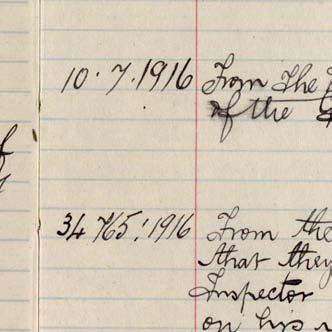 10.7.1916 From the
of the
34765/1916 From the
that they
Inspector
on his